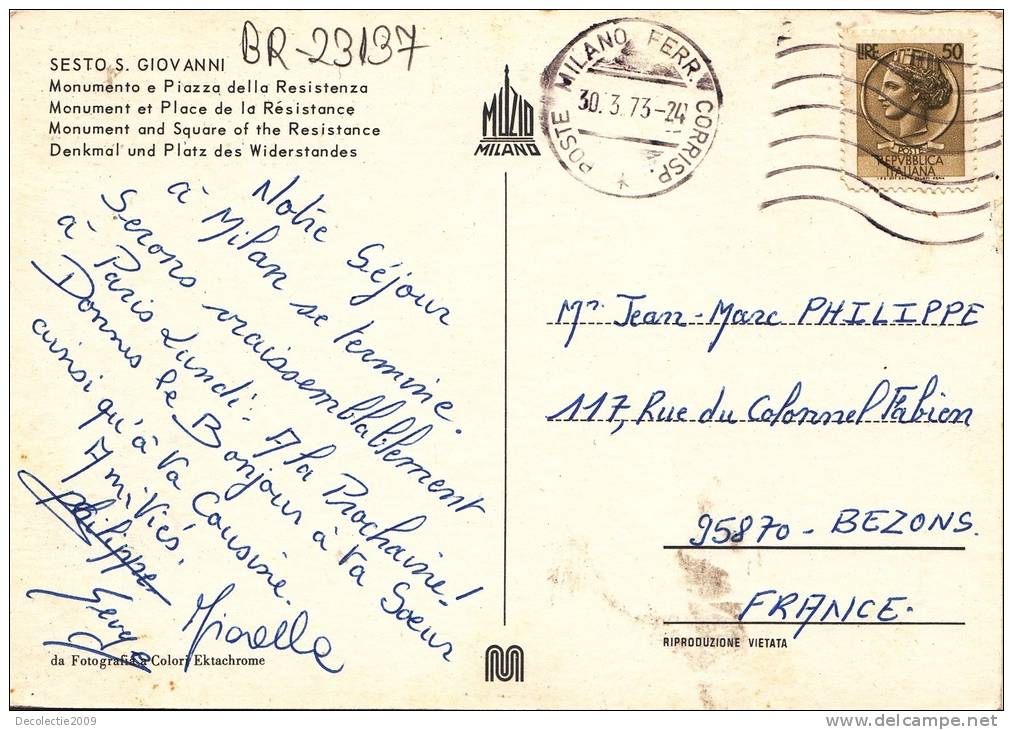 BR-23137
SESTO S. GIOVANNI
Monumento e Piazza della Resistenza
Monument et Place de la Résistance
Monument and Square of the Resistance
Denkmal und Platz des Widerstandes
MUZIO
MILANO
POSTE MILANO FERR. CORRISP.
30.3.73-24
LIRE 50
POSTE
REPVBBLICA
ITALIANA
Notre Séjour
à Milan se termine.
Serons vraissemblablement
à Paris Lundi. A la Prochaine!
Donnes le Bonjour à ta Soeur
ainsi qu'à ta Cousine.
Amitiés.
Philippe
Serge
Mirella
Mr. Jean-Marc PHILIPPE
117, Rue du Colonnel Fabien
95870 - BEZONS.
FRANCE.
RIPRODUZIONE VIETATA
da Fotografia a Colori Ektachrome
Decolectie2009
delcampe.net